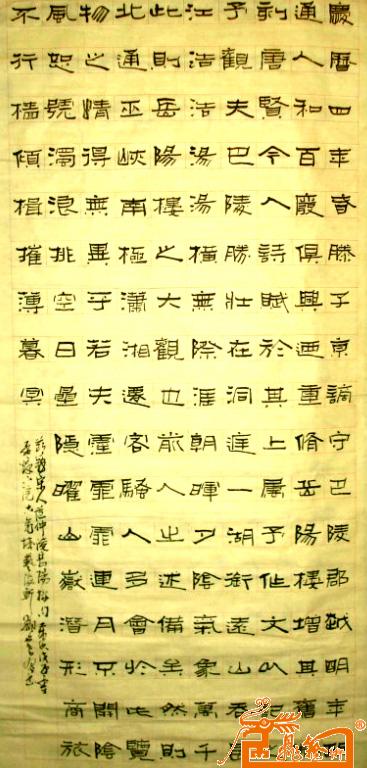 慶曆四年春滕子京謫守巴陵郡越明年
通人和百廢俱興迺重脩岳陽樓增其舊
刻唐賢今人詩賦於其上屬予作文以記
予觀夫巴陵勝壯在洞庭一湖銜遠山吞
江浩浩湯湯橫無際涯朝暉夕陰氣象萬千
此則岳陽樓之大觀也前人之述備矣然則
北通巫峽南極瀟湘遷客騷人多會於此覽
物之情得無異乎若夫霪霏霏連月不開陰
風怒號濁浪排空日星隱曜山嶽潛形商旅
不行檣傾楫摧薄暮冥